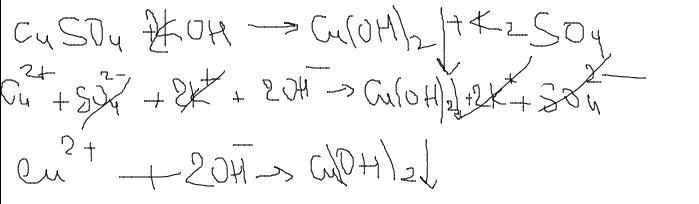 CuSO₄ + 2KOH → Cu(OH)₂↓ + K₂SO₄
Cu²⁺ + SO₄²⁻ + 2K⁺ + 2OH⁻ → Cu(OH)₂↓ + 2K⁺ + SO₄²⁻
Cu²⁺ + 2OH⁻ → Cu(OH)₂↓